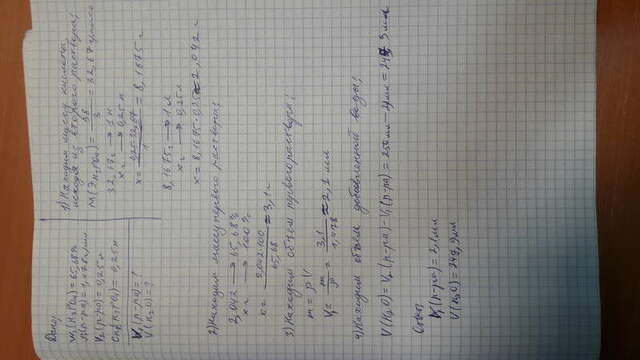 Дано:
w₁(H₃PO₄) = 65,68%
ρ₁(р-ра) = 1,478 г/мл
V₂(р-ра) = 0,25 л
Cн₂(H₃PO₄) = 0,25 н
V₁(р-ра) = ?
V(H₂O) = ?
1) Находим массу кислоты,
исходя из второго раствора:
M(Э H₃PO₄) = 98/3 = 32,67 г/моль
32,67 г → 1 н
x г → 0,25 н
x = 0,25·32,67/1 = 8,1675 г
8,1675 г → 1 л
x г → 0,25 л
x = 8,1675·0,25 ≈ 2,042 г
2) Находим массу первого раствора:
2,042 → 65,68%
x г → 100%
x = 2,042·100/65,68 ≈ 3,1 г
3) Находим объем первого раствора:
m = ρV
V₁ = m/ρ = 3,1/1,478 ≈ 2,1 мл
4) Находим объем добавленной воды:
V(H₂O) = V₂(р-ра) - V₁(р-ра) = 250 мл - 2,1 мл = 247,9 мл
Ответ:
V₁(р-ра) = 2,1 мл
V(H₂O) = 247,9 мл